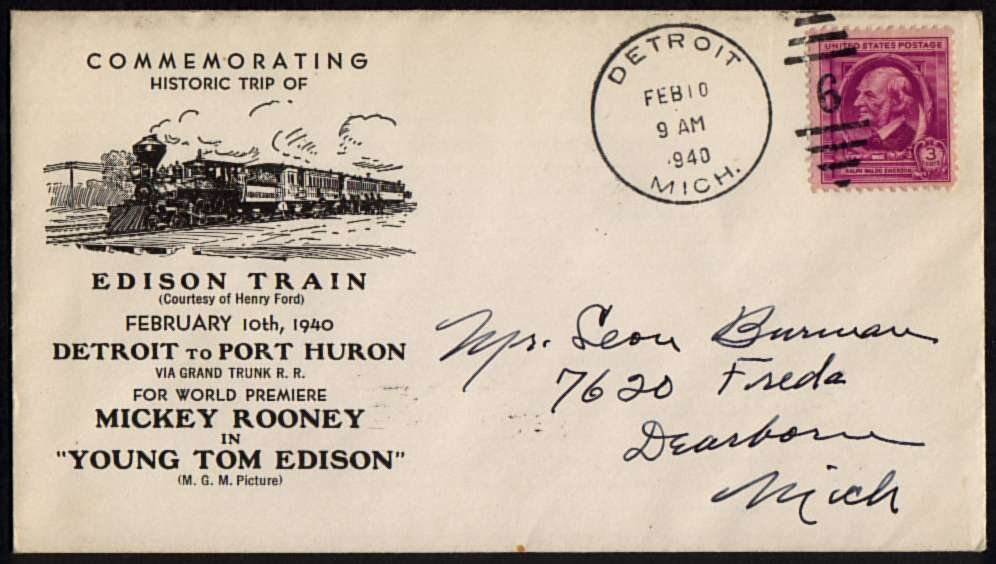 COMMEMORATING
HISTORIC TRIP OF
EDISON TRAIN
(Courtesy of Henry Ford)
FEBRUARY 10th, 1940
DETROIT TO PORT HURON
VIA GRAND TRUNK R. R.
FOR WORLD PREMIERE
MICKEY ROONEY
IN
"YOUNG TOM EDISON"
(M. G. M. Picture)
DETROIT
FEB 10
9 AM
1940
MICH.
6
UNITED STATES POSTAGE
3
RALPH WALDO EMERSON
Mr. Leon Burman
7620 Freda
Dearborn
Mich